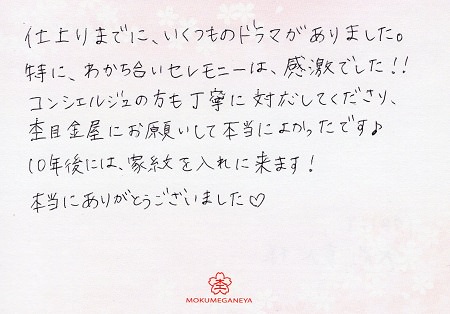 仕上りまでに、いくつものドラマがありました。
特に、わかち合いセレモニーは、感激でした!!
コンシェルジュの方も丁寧に対応してくださり、
杢目金屋にお願いして本当によかったです♪
10年後には、家紋を入れに来ます!
本当にありがとうございました♡
杢
MOKUMEGANEYA